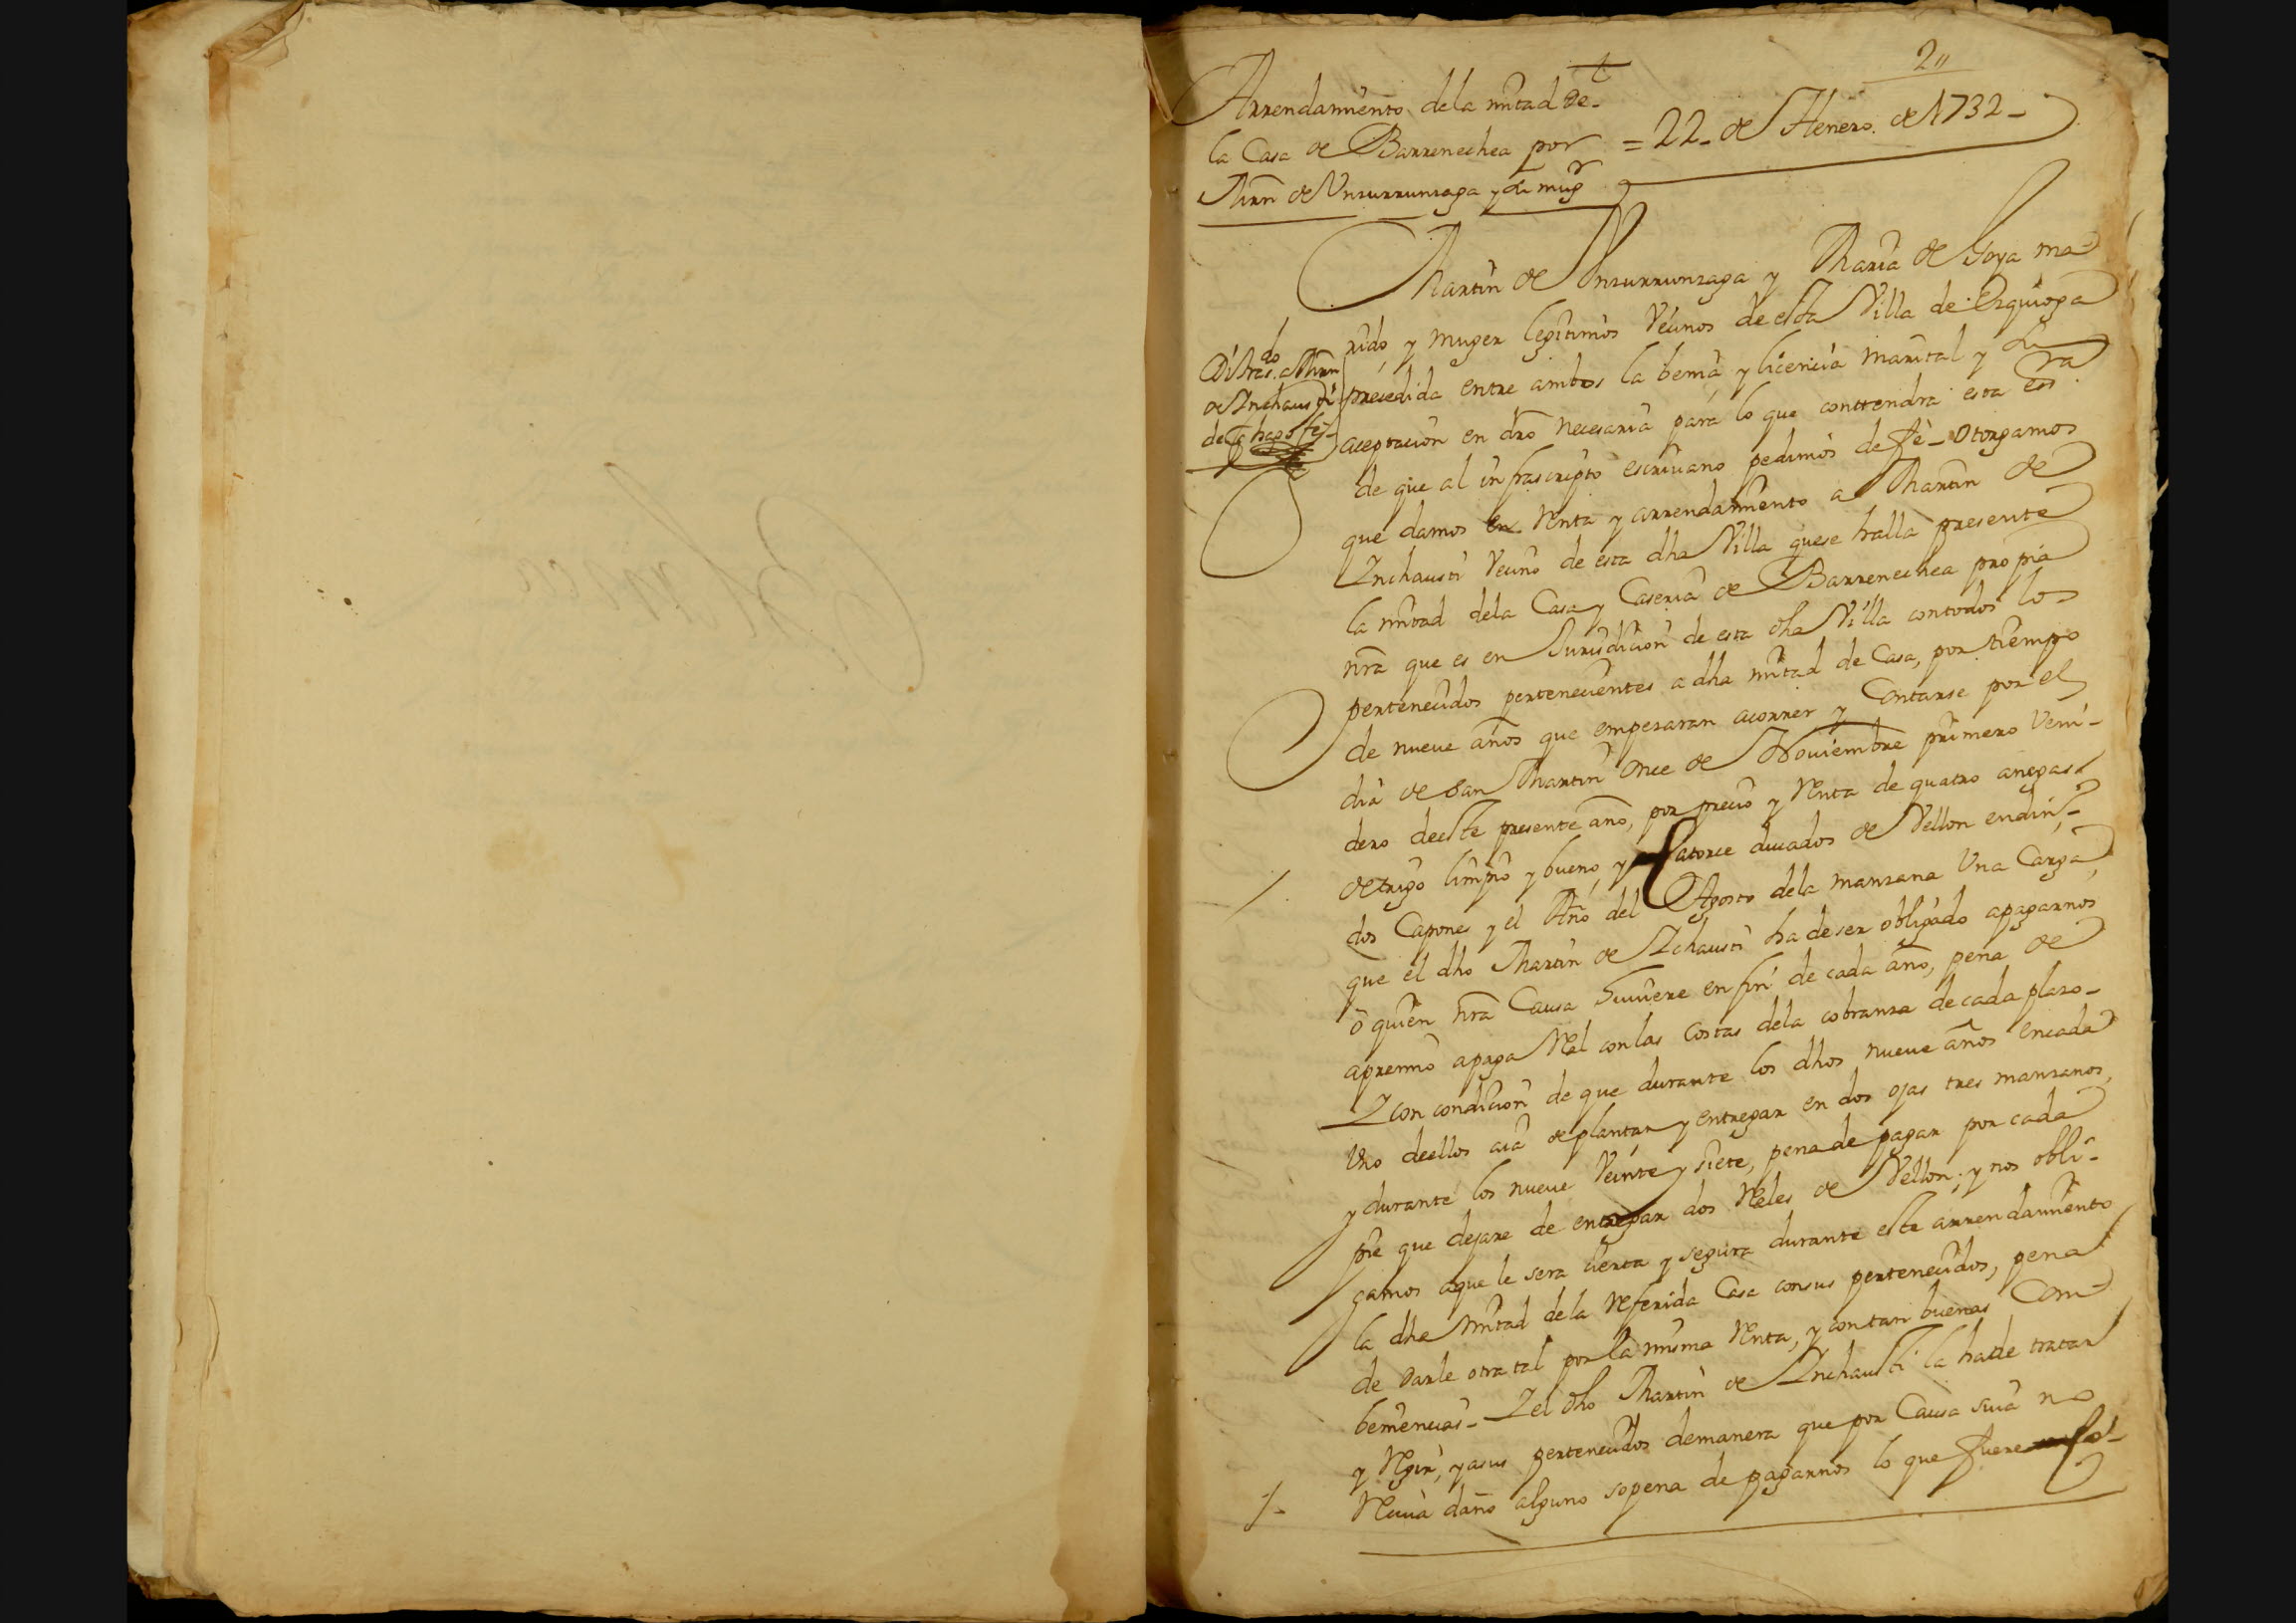 2
Arrendamiento dela mitad de
la Casa de Barrenechea por = 22 de Henero de 1732
Mrn de Unzurrunzaga y su mugr
Martin de Unzurrunzaga y Maria de Goya ma
rido y muger legitimos vecinos de esta Villa de Ezquioga
precedida entre ambos la benia y licencia marital y su
aceptacion en dro necesaria para lo que contendra esta essra
de que al infrascripto escriuano pedimos de fè - otorgamos
que damos en Renta y arrendamiento a Martin de
Ynchausti vecino de esta dha Villa quese halla presente
la mitad dela Casa y Caseria de Barrenechea propia
nra que es en Jurisdicion de esta dha Villa contodos los
pertenecidos pertenecientes a dha mitad de Casa, por tiempo
de nueue años que empesaran acorrer y Contarse por el
dia de San Martin Once de Nouiembre primero veni-
dero deeste presente año, por precio y Renta de quatro anegas
de trigo limpio y bueno, y Catorce ducados de Vellon endin,
dos Capones y el Año del Agosto dela manzana Una Carga,
que el dho Martin de Ychausti ha de ser obligado apagarnos
ò quien nra Causa huuiere en fin de cada año, pena de
apremio apaga Real con las Costas dela cobranza de cada plazo-
Y con condicion de que durante los dhos nueue años encada
Uno deellos aia de plantar y entregar en dos ojas tres manzanos,
y durante los nueue Veinte y siete, pena de pagar por cada
pie que dejare de entregar dos Reles de Vellon; y nos obli-
gamos aque le sera cierta y segura durante este arrendamiento
la dha Mitad dela Referida Casa consus pertenecidos, pena
de darle otra tal por la misma Renta, y contan buenas Com
benencias - Y el dho Martin de Ynchausti la hade tratar
y Regir, y asus pertenecidos demanera que por Causa suia no
Reciua daño alguno sopena de pagarnos lo que fuere
do
Di tras. a Mrn
de Ynchausti
de q hago fe-